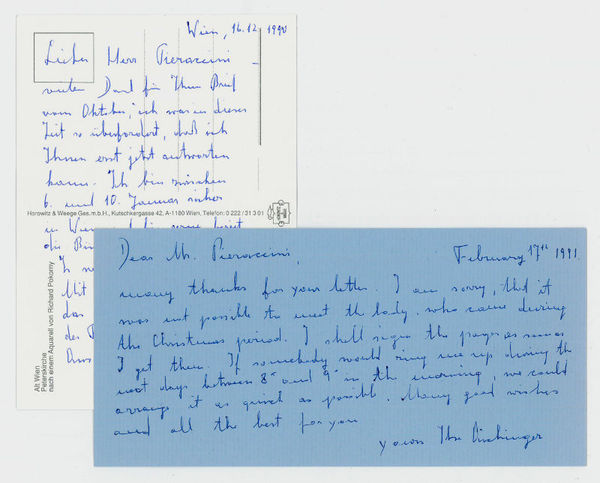 Wien, 16.12 1990
Lieber Herr Pieraccini
vielen Dank für Ihren Brief
vom Oktober, ich war in dieser
Zeit so überfordert, daß ich
Ihnen erst jetzt antworten
kann. Ich bin zwischen
6. und 10. Januar sicher
Horowitz & Weege Ges.m.b.H., Kutschkergasse 42, A-1180 Wien, Telefon: 0 222 / 31 3 01
in Wien
die
Mit
das
des
Alt Wien
Peterskirche
nach einem Aquarell von Richard Pokorny
Dear Mr. Pieraccini, February 17th 1991
many thanks for your letter. I am sorry, that it
was not possible to meet the lady, who came during
the Christmas period. I shall sign the pages as soon as
I get them. If somebody would ring me up during the
next days between 8 and 9 in the morning, we could
arrange it as quick as possible. Many good wishes
and all the best for you
yours Ilse Aichinger